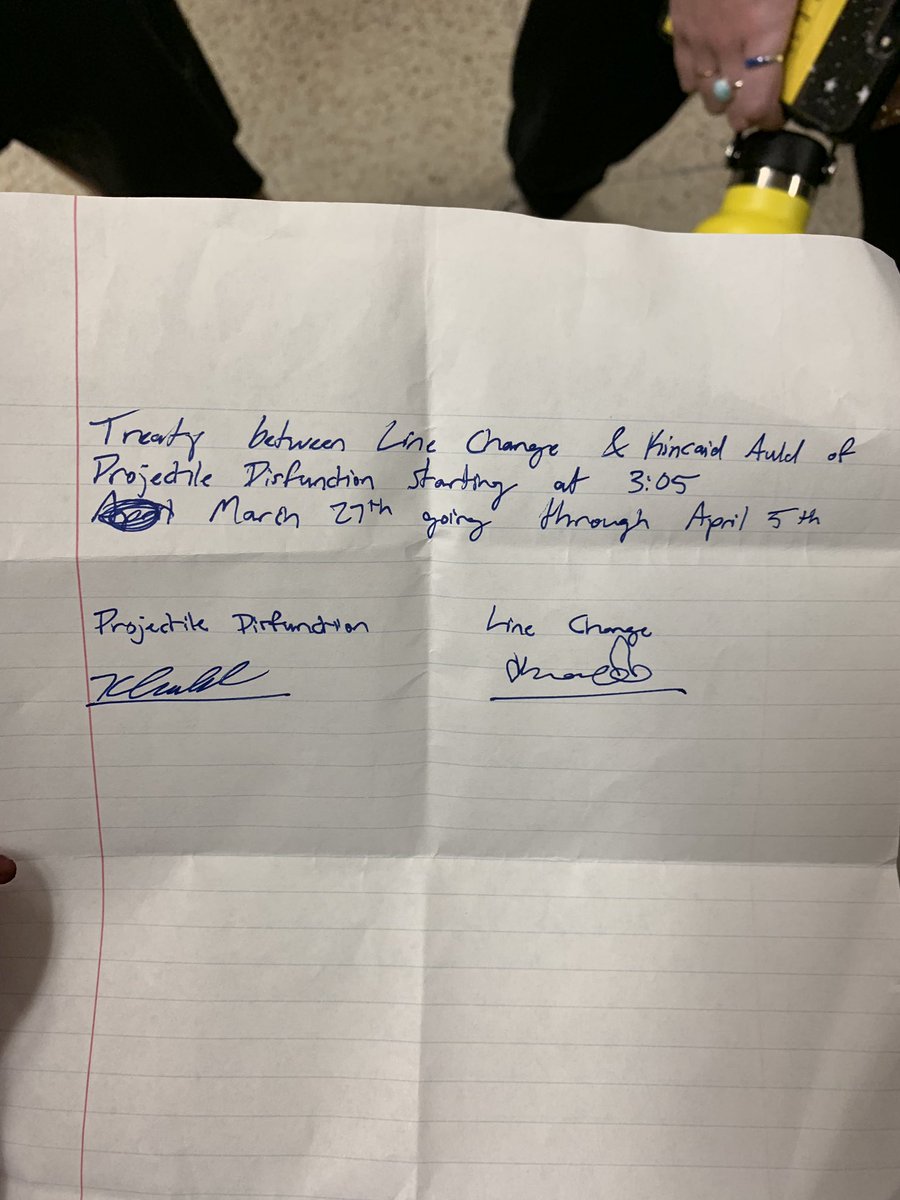 Treaty between Line Change & Kincaid Auld of
Projectile Disfunction starting at 3:05
March 27th going through April 5th
Projectile Disfunction Line Change